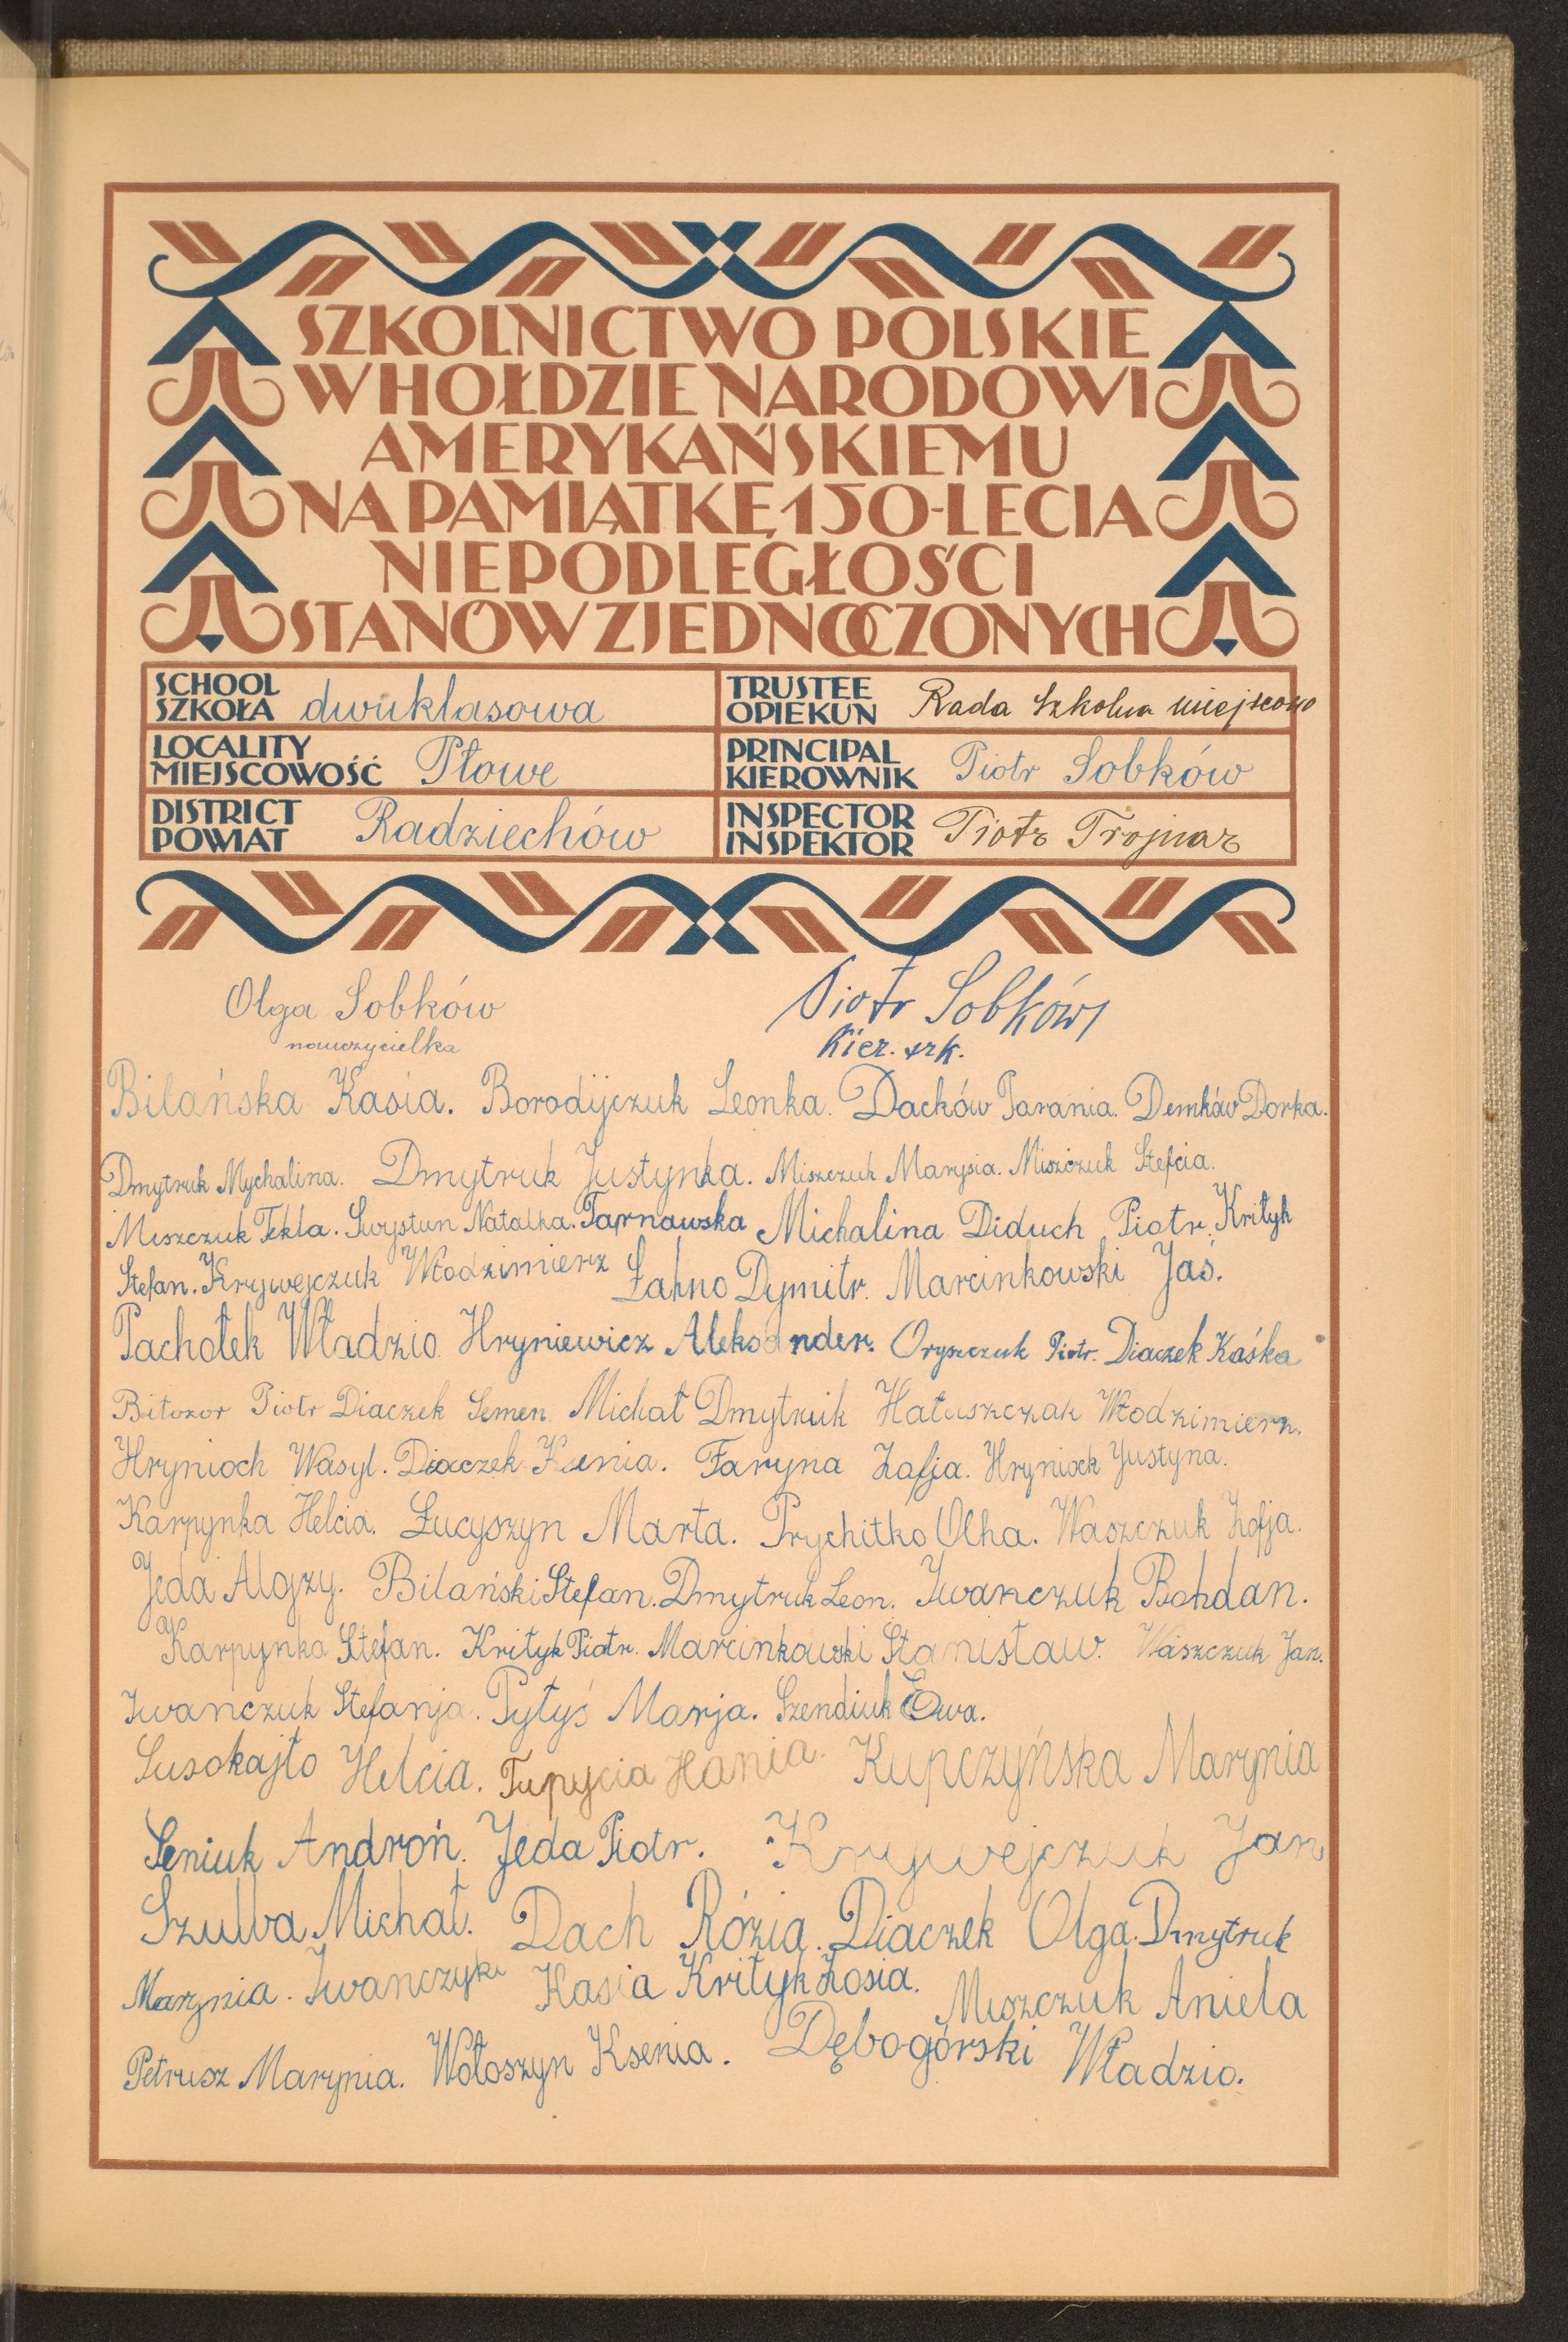 SZKOLNICTWO POLSKIE
W HOŁDZIE NARODOWI
AMERYKAŃSKIEMU
NA PAMIĄTKĘ 150-LECIA
NIEPODLEGŁOŚCI
STANÓW ZJEDNOCZONYCH
SCHOOL
SZKOŁA dwuklasowa
TRUSTEE
OPIEKUN Rada Szkolna miejscowo
LOCALITY
MIEJSCOWOŚĆ Płowe
PRINCIPAL
KIEROWNIK Piotr Sobków
DISTRICT
POWIAT Radziechów
INSPECTOR
INSPEKTOR Piotr Trojnar
Olga Sobków
nauczycielka
Piotr Sobków
Kier. szk.
Bilańska Kasia. Borodijczuk Leonka. Dacków Parania. Demków Dorka.
Dmytruk Mychalina. Dmytruk Justynka. Miszczuk Marysia. Miszczuk Stefcia.
Miszczuk Tekla. Swystun Natalka. Tarnawska Michalina Diduch Piotr. Krityk
Stefan. Krywejczuk Włodzimierz Łahno Dymitr. Marcinkowski Jaś.
Pachołek Władzio. Hryniewicz Aleksander. Oryszczuk Piotr. Diaczek Kaśka
Biłozor Piotr Diaczek Semen. Michał Dmytruk Hałuszczak Włodzimierz.
Hrynioch Wasyl. Diaczek Ksenia. Faryna Zofja. Hrynioch Justyna.
Karpynka Helcia. Łucyszyn Marta. Prychitko Olha. Waszczuk Zofja.
Jeda Alojzy. Bilański Stefan. Dmytruk Leon. Iwanczuk Bohdan.
Karpynka Stefan. Krityk Piotr. Marcinkowski Stanisław. Waszczuk Jan.
Iwanczuk Stefanja. Pytyś Marja. Szendiuk Ewa.
Susokajło Helcia. Tupycia Hania. Kupczyńska Marynia
Seniuk Androń. Jeda Piotr. Krywejczuk Jan
Szulba Michał. Dach Rózia. Diaczek Olga. Dmytruk
Marynia. Iwanczyk Kasia Krityk Zosia. Miszczuk Aniela
Petrusz Marynia. Wołoszyn Ksenia. Dębogórski Władzio.